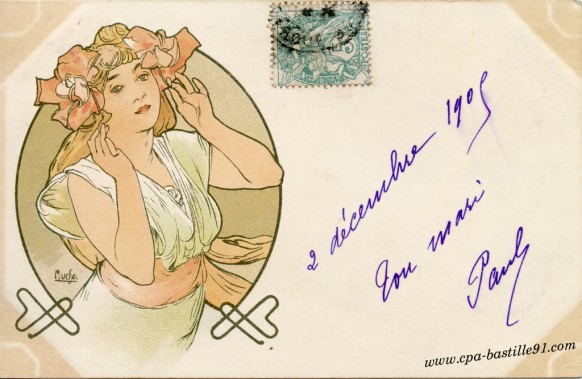 2 décembre 1905
Ton mari
Paul
Mucha
www.cpa-bastille91.com